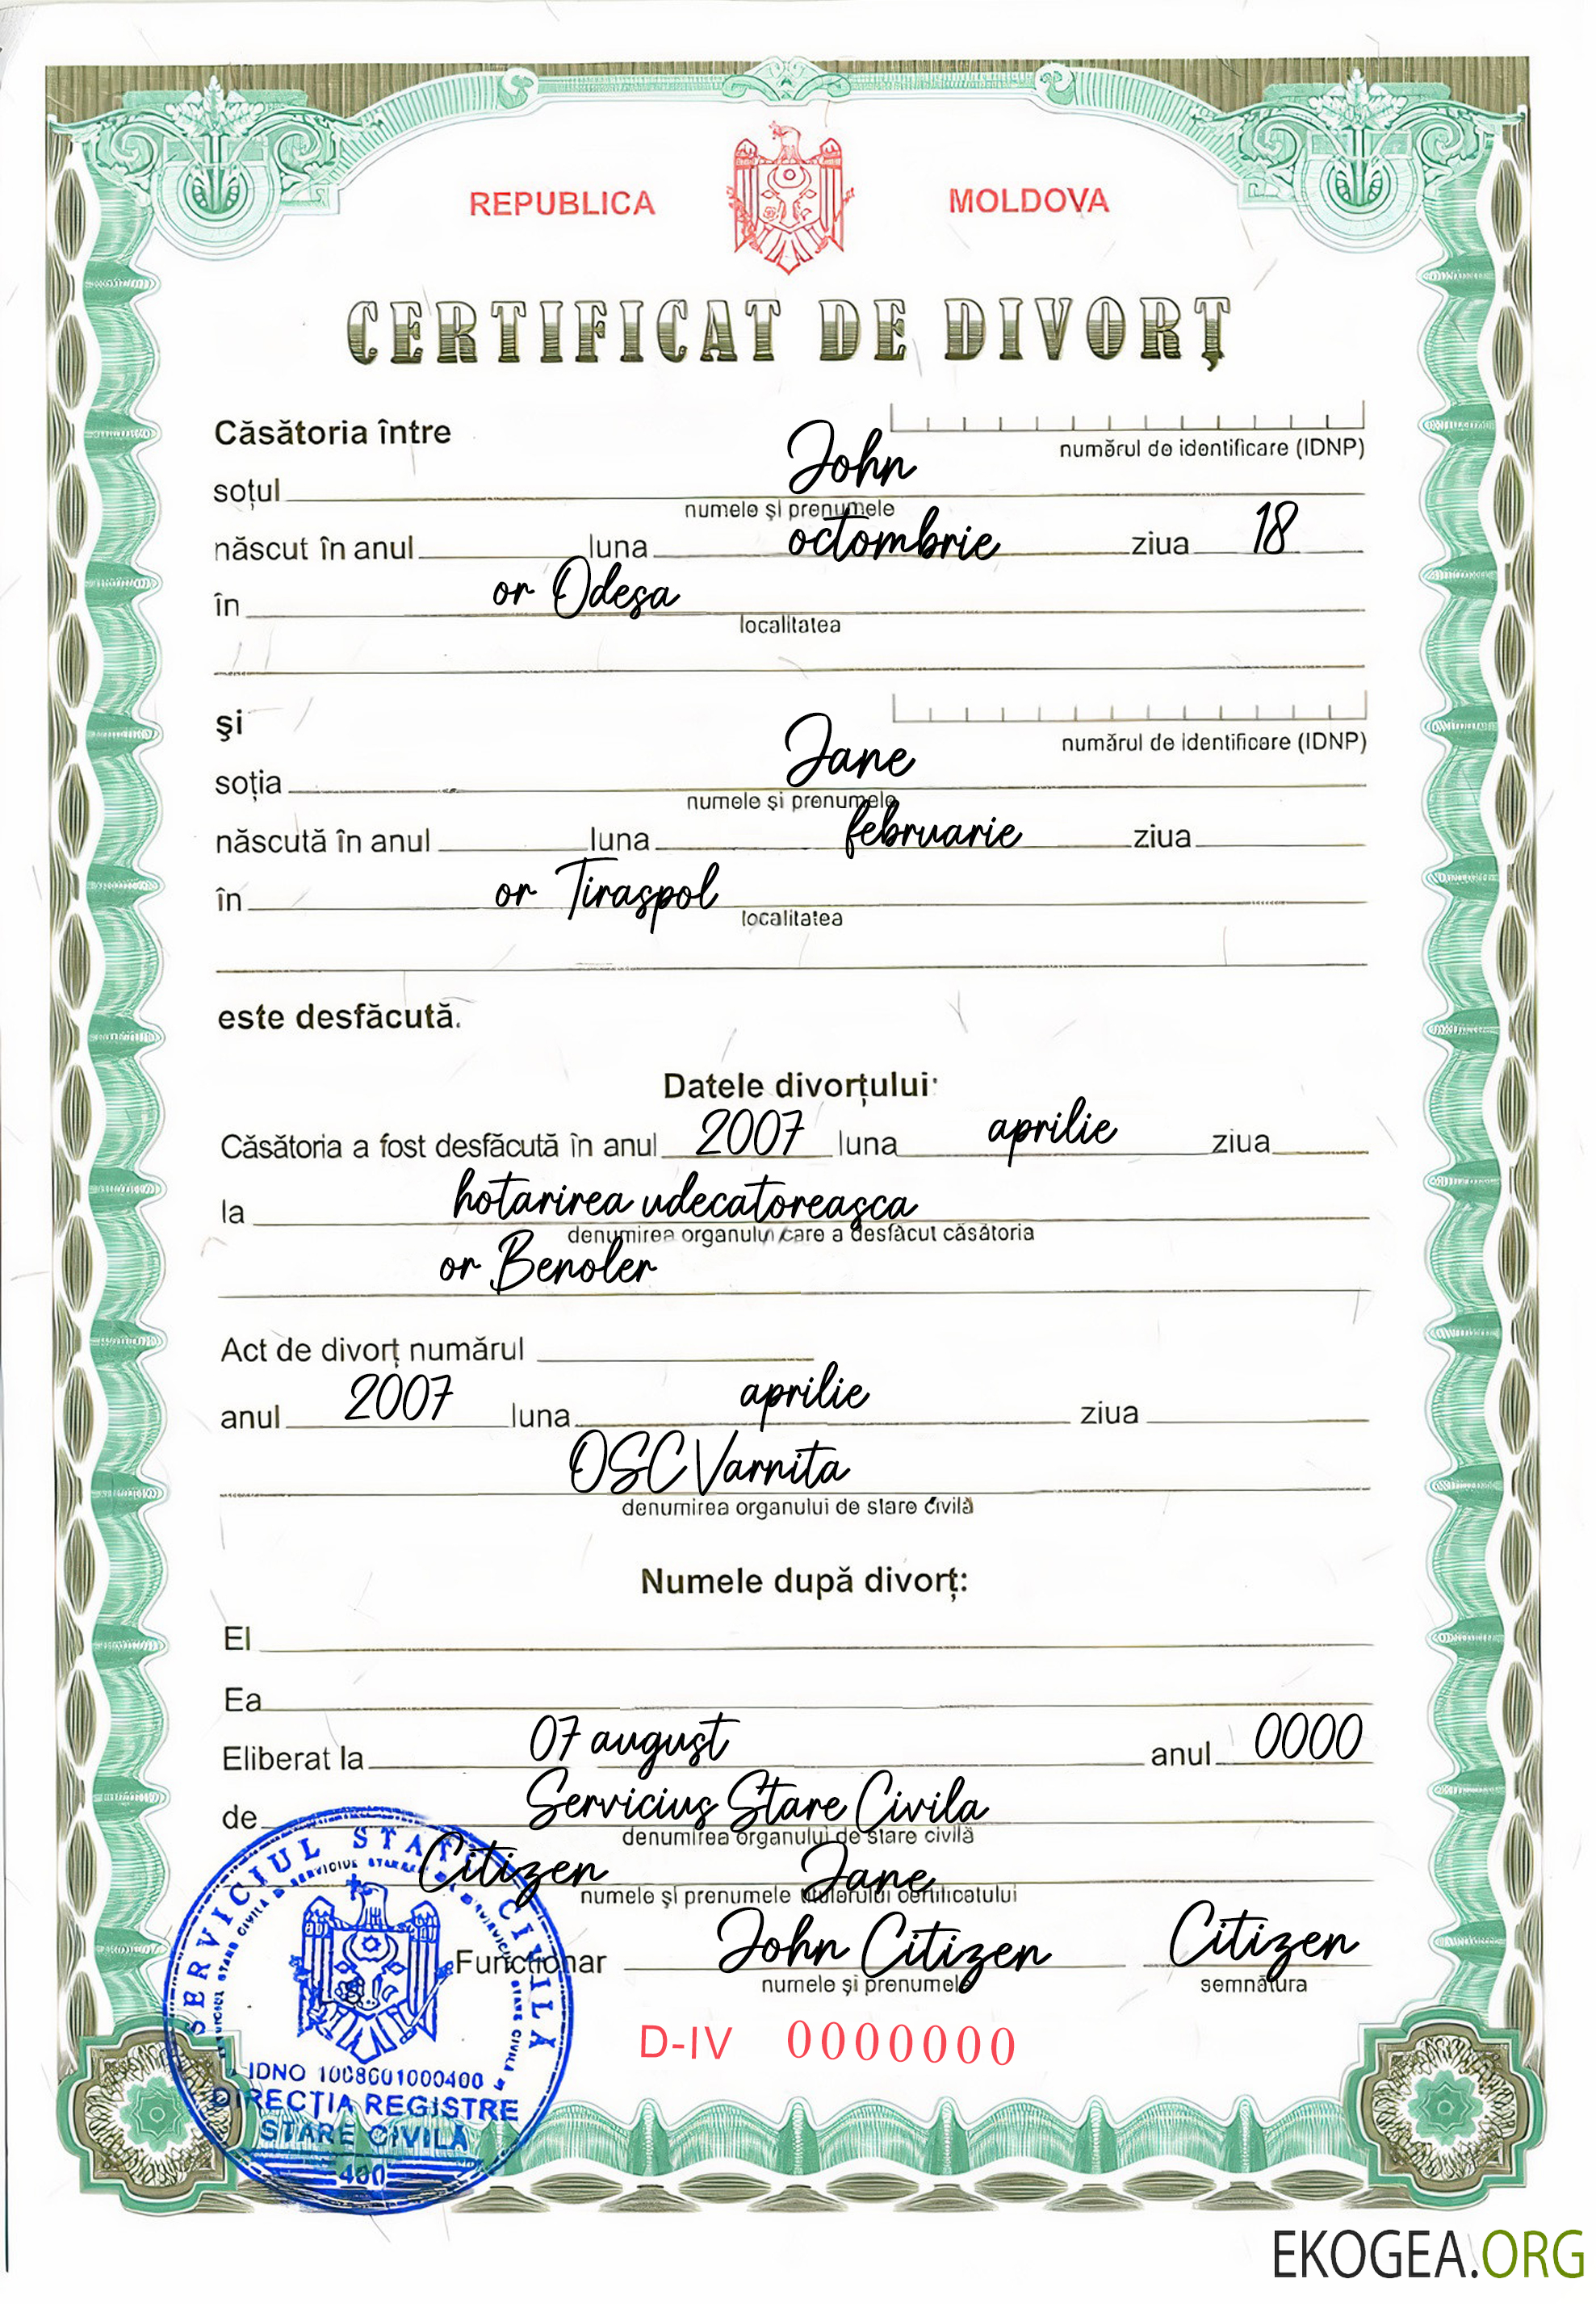 REPUBLICA MOLDOVA
CERTIFICAT DE DIVORȚ
Căsătoria între
numărul de identificare (IDNP)
soțul John
numele și prenumele
născut în anul luna octombrie ziua 18
în or Odesa
localitatea
și
numărul de identificare (IDNP)
soția Jane
numele și prenumele
născută în anul luna februarie ziua
în or Tiraspol
localitatea
este desfăcută.
Datele divorțului:
Căsătoria a fost desfăcută în anul 2007 luna aprilie ziua
la hotarirea udecatoreasca
denumirea organului care a desfăcut căsătoria
or Benoler
Act de divorț numărul
anul 2007 luna aprilie ziua
OSC Varnita
denumirea organului de stare civilă
Numele după divorț:
El
Ea
Eliberat la 07 august anul 0000
de Servicius Stare Civila
denumirea organului de stare civilă
Citizen Jane
numele și prenumele titularului certificatului
Funcționar John Citizen Citizen
numele și prenumele semnătura
D-IV 0000000
SERVICIUL STARE CIVILĂ
IDNO 1008601000400
DIRECȚIA REGISTRE
STARE CIVILĂ
400
EKOGEA.ORG